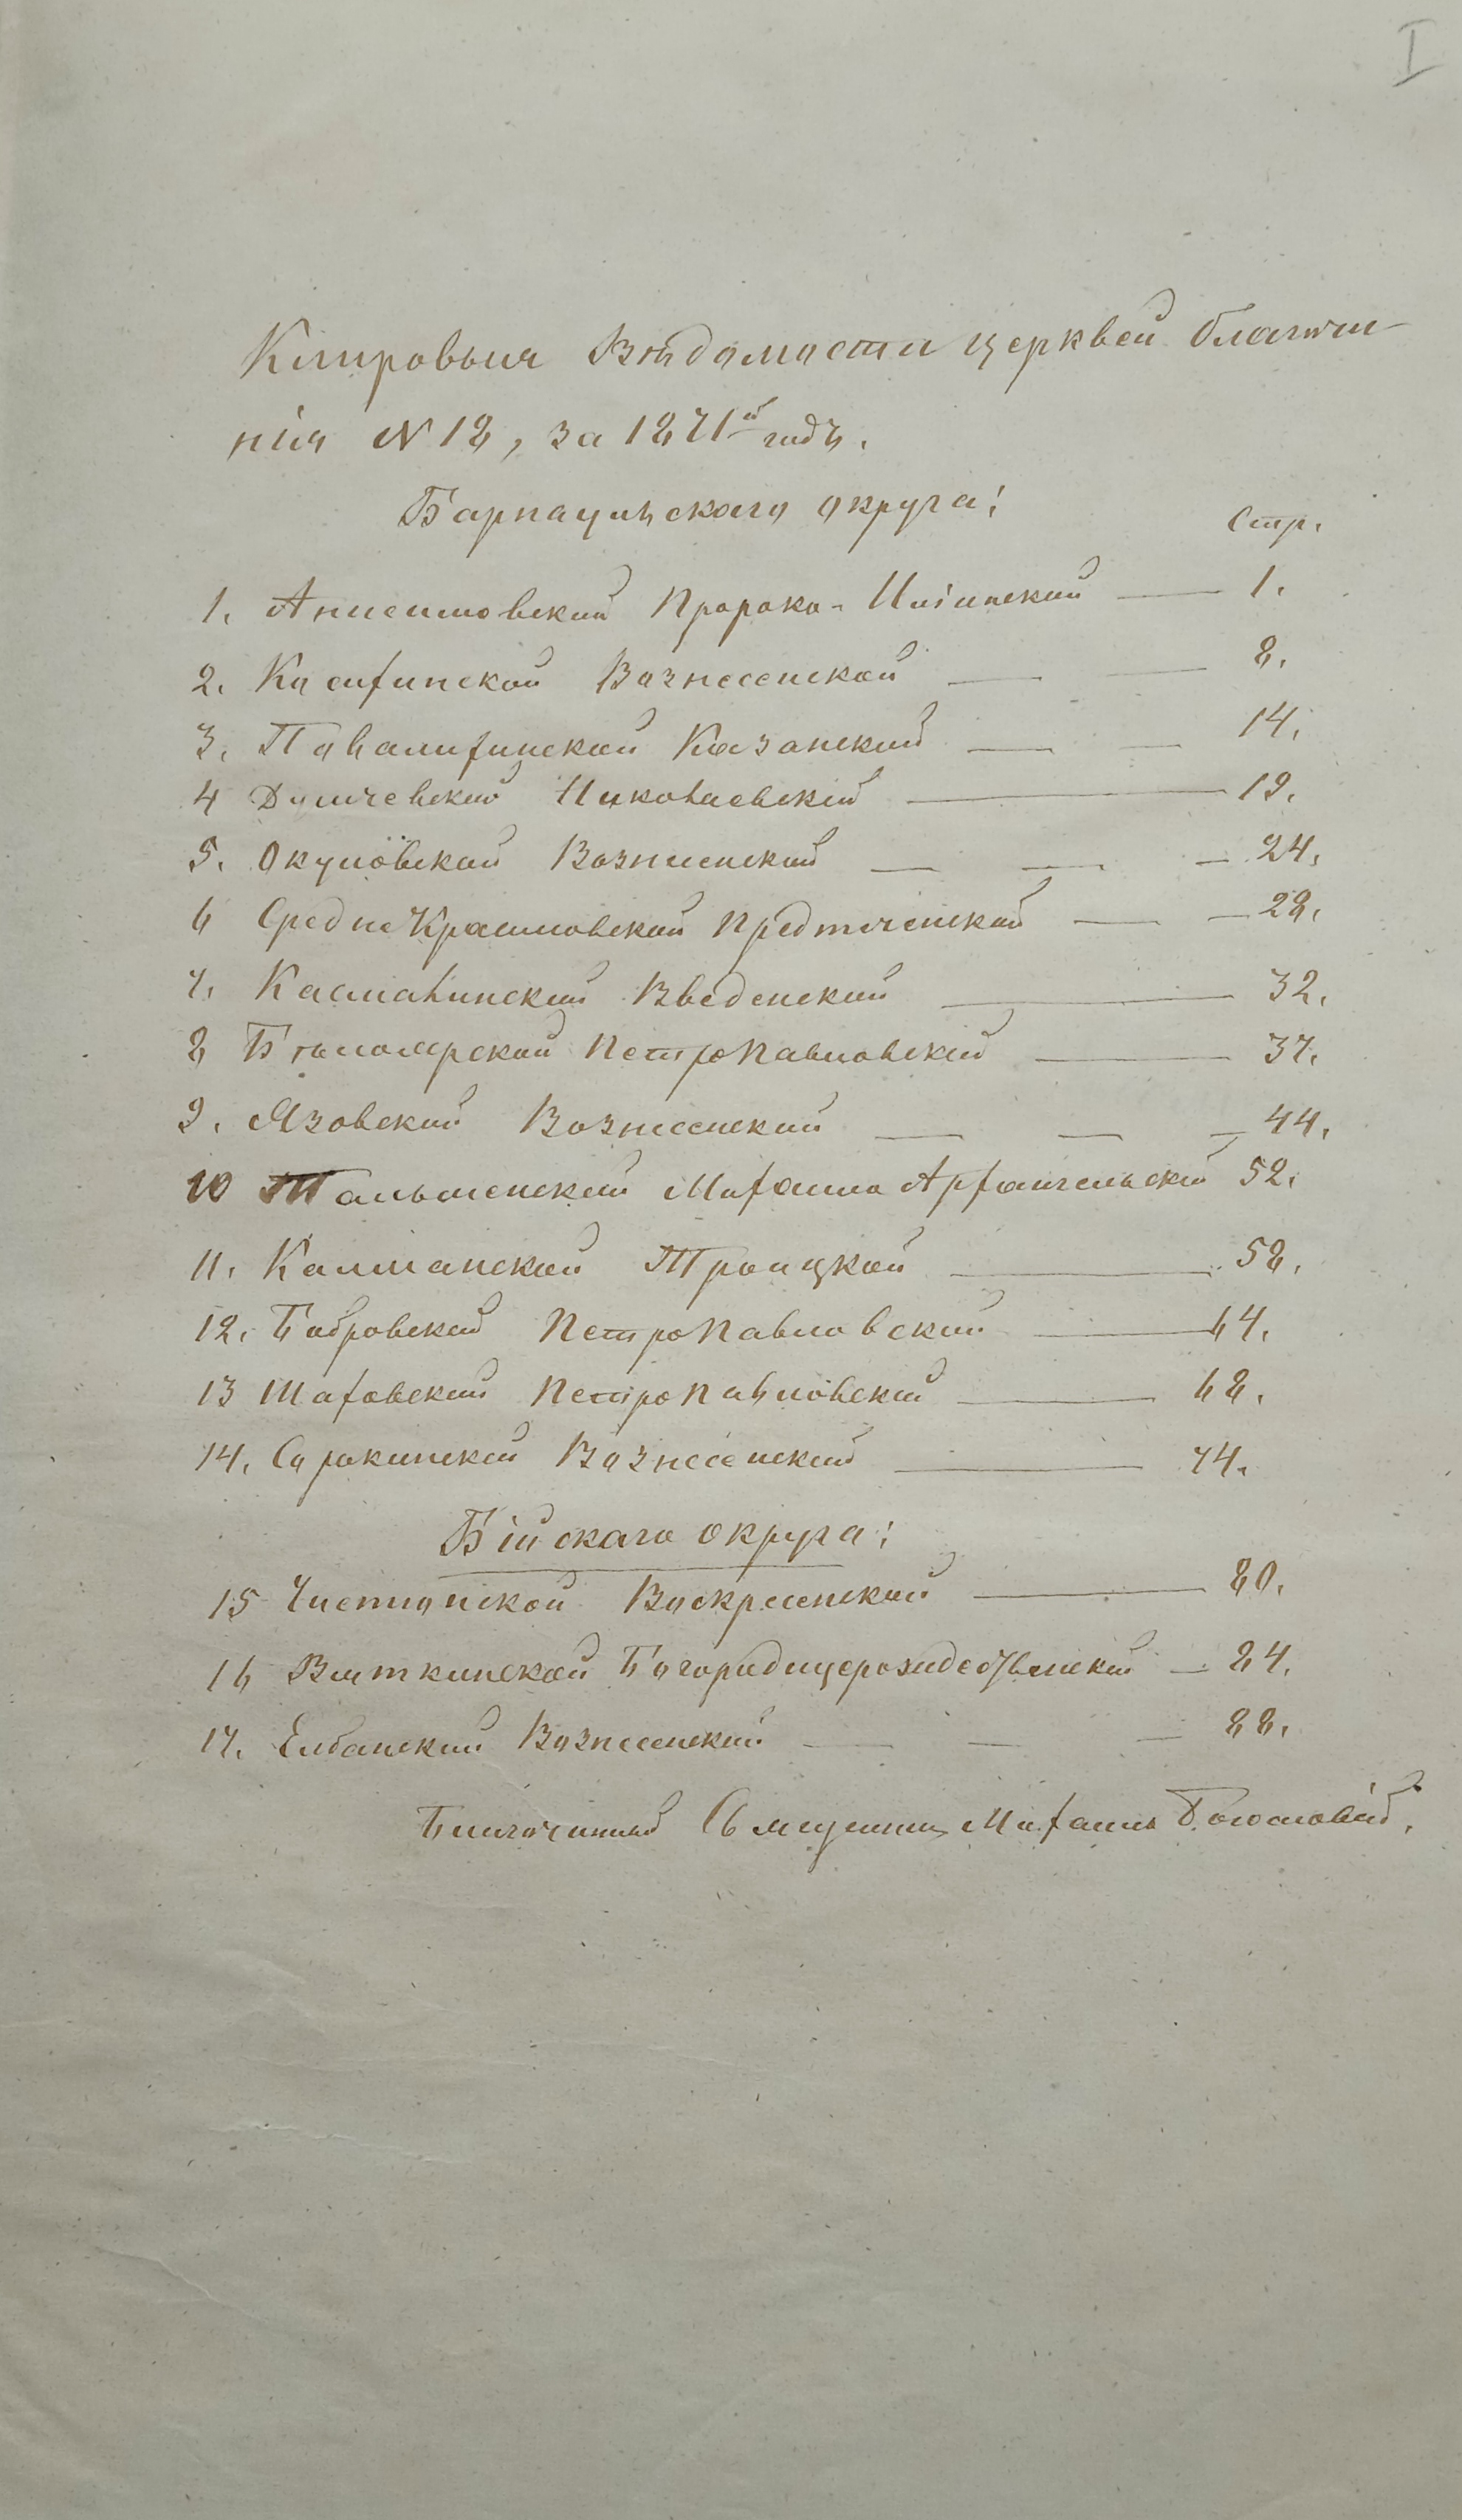 I
Клировыя Вѣдомости церквей благочи-
нія N 18, за 1871й годъ.
Барнаульскаго округа:
Стр.
1. Анисимовской Пророко-Ильинской — 1.
2. Космалинской Вознесенской — — 8.
3. Повалихинской Казанской — — 14.
4 Думчевской Николаевской — 19.
5. Окуловской Вознесенской — — — 24.
6 СреднеКрасиловской Предтеченской — — 28.
7. Касмалинской Введенской — 32.
8 Бѣлоярской ПетроПавловской — 37.
9. Язовской Вознесенской — — — 44.
10 Тальменской Михаило Архангельской 52.
11. Калманской Троицкой — 58.
12. Бобровской ПетроПавловской — 64.
13 Шаховской ПетроПавловской — 68.
14. Сорокинской Вознесенской — 74.
Бійскаго округа:
15 Чистюнской Воскресенской — 80.
16 Вяткинской Богородицерождественской — 84.
17. Елбанской Вознесенской — — — 88.
Благочинный Священникъ Михаилъ